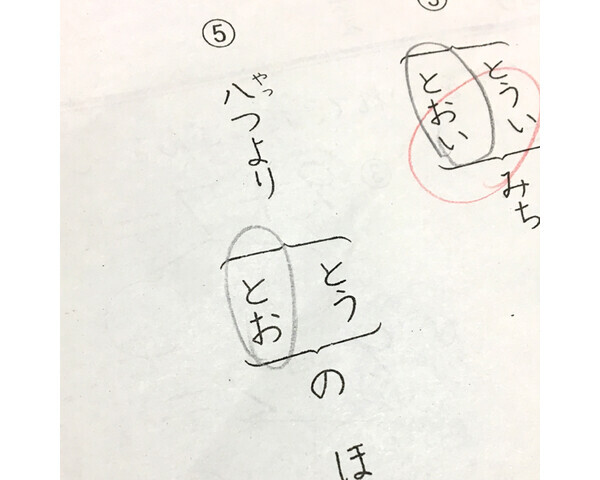 とうい
とおい
みち
⑤
やっ
八つより
とう
とお
の
ほ